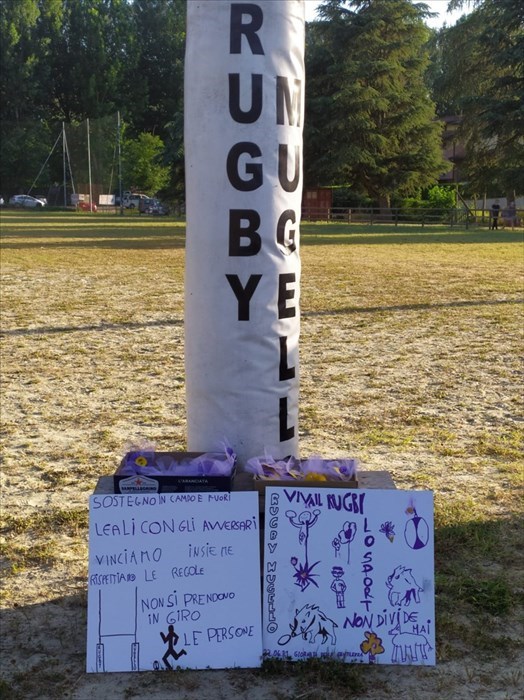 RUGBY
MUGELLO
SANPELLEGRINO
L'ARANCIATA
SOSTEGNO IN CAMPO E FUORI
LEALI CON GLI AVVERSARI
VINCIAMO INSIEME
RISPETTIAMO LE REGOLE
NON SI PRENDONO
IN GIRO
LE PERSONE
VIVA IL RUGBY
RUGBY MUGELLO
LO SPORT
NON DIVIDE
MAI